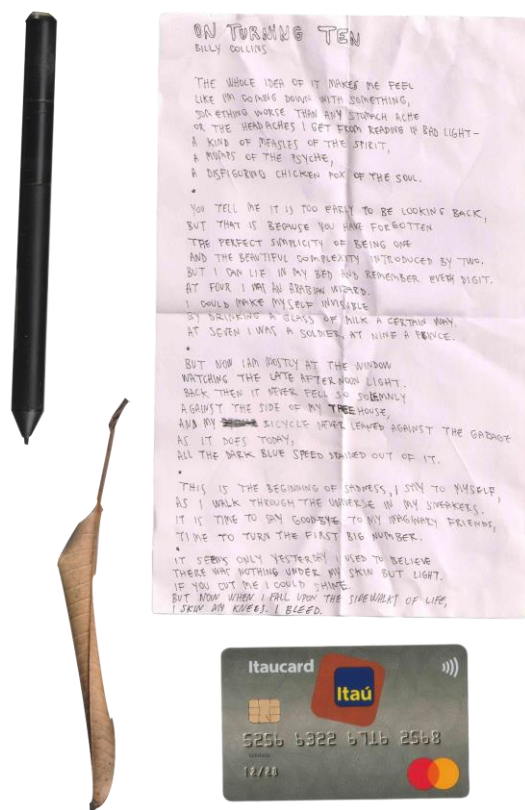 ON TURNING TEN
BILLY COLLINS
THE WHOLE IDEA OF IT MAKES ME FEEL
LIKE I'M COMING DOWN WITH SOMETHING,
SOMETHING WORSE THAN ANY STOMACH ACHE
OR THE HEADACHES I GET FROM READING IN BAD LIGHT-
A KIND OF MEASLES OF THE SPIRIT,
A MUMPS OF THE PSYCHE,
A DISFIGURING CHICKEN POX OF THE SOUL.
YOU TELL ME IT IS TOO EARLY TO BE LOOKING BACK,
BUT THAT IS BECAUSE YOU HAVE FORGOTTEN
THE PERFECT SIMPLICITY OF BEING ONE
AND THE BEAUTIFUL COMPLEXITY INTRODUCED BY TWO.
BUT I CAN LIE IN MY BED AND REMEMBER EVERY DIGIT.
AT FOUR I WAS AN ARABIAN WIZARD.
I COULD MAKE MYSELF INVISIBLE
BY DRINKING A GLASS OF MILK A CERTAIN WAY.
AT SEVEN I WAS A SOLDIER, AT NINE A PRINCE.
BUT NOW I AM MOSTLY AT THE WINDOW
WATCHING THE LATE AFTERNOON LIGHT.
BACK THEN IT NEVER FELL SO SOLEMNLY
AGAINST THE SIDE OF MY TREE HOUSE,
AND MY BICYCLE NEVER LEANED AGAINST THE GARAGE
AS IT DOES TODAY,
ALL THE DARK BLUE SPEED DRAINED OUT OF IT.
THIS IS THE BEGINNING OF SADNESS, I SAY TO MYSELF,
AS I WALK THROUGH THE UNIVERSE IN MY SNEAKERS.
IT IS TIME TO SAY GOOD-BYE TO MY IMAGINARY FRIENDS,
TIME TO TURN THE FIRST BIG NUMBER.
IT SEEMS ONLY YESTERDAY I USED TO BELIEVE
THERE WAS NOTHING UNDER MY SKIN BUT LIGHT.
IF YOU CUT ME I COULD SHINE.
BUT NOW WHEN I FALL UPON THE SIDEWALKS OF LIFE,
I SKIN MY KNEES. I BLEED.
Itaucard
Itaú